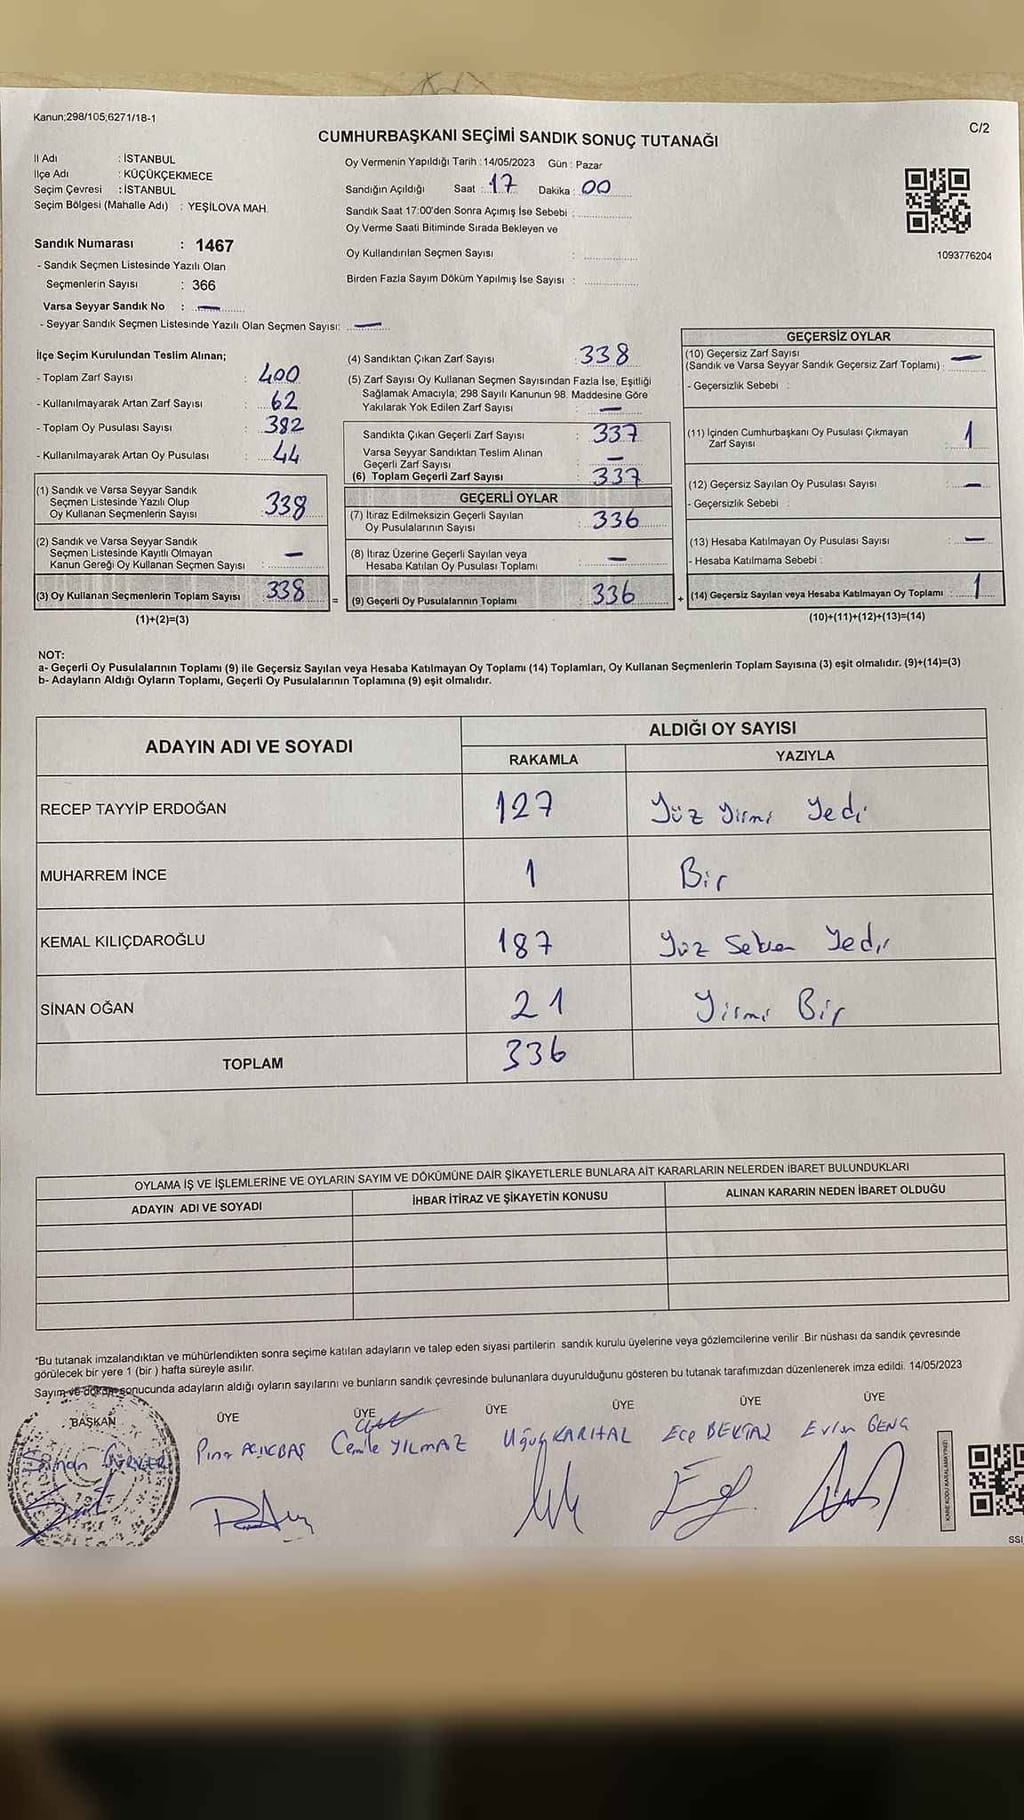 Kanun;298/105,6271/18-1
C/2
CUMHURBAŞKANI SEÇİMİ SANDIK SONUÇ TUTANAĞI
İl Adı : İSTANBUL
İlçe Adı : KÜÇÜKÇEKMECE
Seçim Çevresi : İSTANBUL
Seçim Bölgesi (Mahalle Adı) : YEŞİLOVA MAH.
Sandık Numarası : 1467
- Sandık Seçmen Listesinde Yazılı Olan
Seçmenlerin Sayısı : 366
Varsa Seyyar Sandık No : —
- Seyyar Sandık Seçmen Listesinde Yazılı Olan Seçmen Sayısı: —
Oy Vermenin Yapıldığı Tarih : 14/05/2023 Gün : Pazar
Sandığın Açıldığı Saat : 17 Dakika : 00
Sandık Saat 17:00'den Sonra Açımış İse Sebebi :
Oy Verme Saati Bitiminde Sırada Bekleyen ve
Oy Kullandırılan Seçmen Sayısı :
Birden Fazla Sayım Döküm Yapılmış İse Sayısı :
1093776204
İlçe Seçim Kurulundan Teslim Alınan;
- Toplam Zarf Sayısı : 400
- Kullanılmayarak Artan Zarf Sayısı : 62
- Toplam Oy Pusulası Sayısı : 382
- Kullanılmayarak Artan Oy Pusulası : 44
(1) Sandık ve Varsa Seyyar Sandık
Seçmen Listesinde Yazılı Olup
Oy Kullanan Seçmenlerin Sayısı : 338
(2) Sandık ve Varsa Seyyar Sandık
Seçmen Listesinde Kayıtlı Olmayan
Kanun Gereği Oy Kullanan Seçmen Sayısı : —
(3) Oy Kullanan Seçmenlerin Toplam Sayısı 338
(1)+(2)=(3)
(4) Sandıktan Çıkan Zarf Sayısı : 338
(5) Zarf Sayısı Oy Kullanan Seçmen Sayısından Fazla İse, Eşitliği
Sağlamak Amacıyla; 298 Sayılı Kanunun 98. Maddesine Göre
Yakılarak Yok Edilen Zarf Sayısı : —
Sandıkta Çıkan Geçerli Zarf Sayısı : 337
Varsa Seyyar Sandıktan Teslim Alınan
Geçerli Zarf Sayısı : —
(6) Toplam Geçerli Zarf Sayısı : 337
GEÇERLİ OYLAR
(7) İtiraz Edilmeksizin Geçerli Sayılan
Oy Pusulalarının Sayısı : 336
(8) İtiraz Üzerine Geçerli Sayılan veya
Hesaba Katılan Oy Pusulası Toplamı : —
= (9) Geçerli Oy Pusulalarının Toplamı : 336
GEÇERSİZ OYLAR
(10) Geçersiz Zarf Sayısı
(Sandık ve Varsa Seyyar Sandık Geçersiz Zarf Toplamı) : —
- Geçersizlik Sebebi :
(11) İçinden Cumhurbaşkanı Oy Pusulası Çıkmayan
Zarf Sayısı : 1
(12) Geçersiz Sayılan Oy Pusulası Sayısı : —
- Geçersizlik Sebebi :
(13) Hesaba Katılmayan Oy Pusulası Sayısı : —
- Hesaba Katılmama Sebebi :
+ (14) Geçersiz Sayılan veya Hesaba Katılmayan Oy Toplamı : 1
(10)+(11)+(12)+(13)=(14)
NOT:
a- Geçerli Oy Pusulalarının Toplamı (9) ile Geçersiz Sayılan veya Hesaba Katılmayan Oy Toplamı (14) Toplamları, Oy Kullanan Seçmenlerin Toplam Sayısına (3) eşit olmalıdır. (9)+(14)=(3)
b- Adayların Aldığı Oyların Toplamı, Geçerli Oy Pusulalarının Toplamına (9) eşit olmalıdır.
ADAYIN ADI VE SOYADI ALDIĞI OY SAYISI
RAKAMLA YAZIYLA
RECEP TAYYİP ERDOĞAN 127 Yüz Yirmi Yedi
MUHARREM İNCE 1 Bir
KEMAL KILIÇDAROĞLU 187 Yüz Seksen Yedi
SİNAN OĞAN 21 Yirmi Bir
TOPLAM 336
OYLAMA İŞ VE İŞLEMLERİNE VE OYLARIN SAYIM VE DÖKÜMÜNE DAİR ŞİKAYETLERLE BUNLARA AİT KARARLARIN NELERDEN İBARET BULUNDUKLARI
ADAYIN ADI VE SOYADI İHBAR İTİRAZ VE ŞİKAYETİN KONUSU ALINAN KARARIN NEDEN İBARET OLDUĞU
*Bu tutanak imzalandıktan ve mühürlendikten sonra seçime katılan adayların ve talep eden siyasi partilerin sandık kurulu üyelerine veya gözlemcilerine verilir .Bir nüshası da sandık çevresinde
görülecek bir yere 1 (bir ) hafta süreyle asılır.
Sayım ve döküm sonucunda adayların aldığı oyların sayılarını ve bunların sandık çevresinde bulunanlara duyurulduğunu gösteren bu tutanak tarafımızdan düzenlenerek imza edildi. 14/05/2023
BAŞKAN ÜYE ÜYE ÜYE ÜYE ÜYE ÜYE
Pınar AÇIKBAŞ Cemile YILMAZ Uğur KARITAL Ece BEKTAŞ Evrim GENÇ
SSI